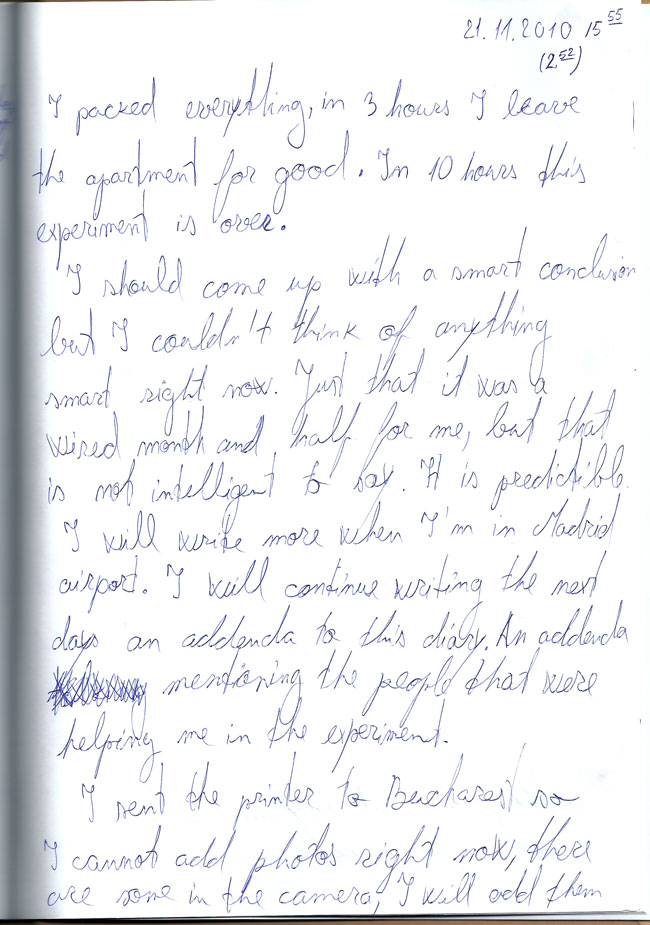 21.11.2010 15 55
(2 52)
I packed everything, in 3 hours I leave
the apartment for good. In 10 hours this
experiment is over.
I should come up with a smart conclusion
but I couldn't think of anything
smart right now. Just that it was a
wired month and half for me, but that
is not intelligent to say. It is predictible.
I will write more when I'm in Madrid
airport. I will continue writing the next
days an addenda to this diary. An addenda
mentioning the people that were
helping me in the experiment.
I sent the printer to Bucharest so
I cannot add photos right now, there
are some in the camera, I will add them